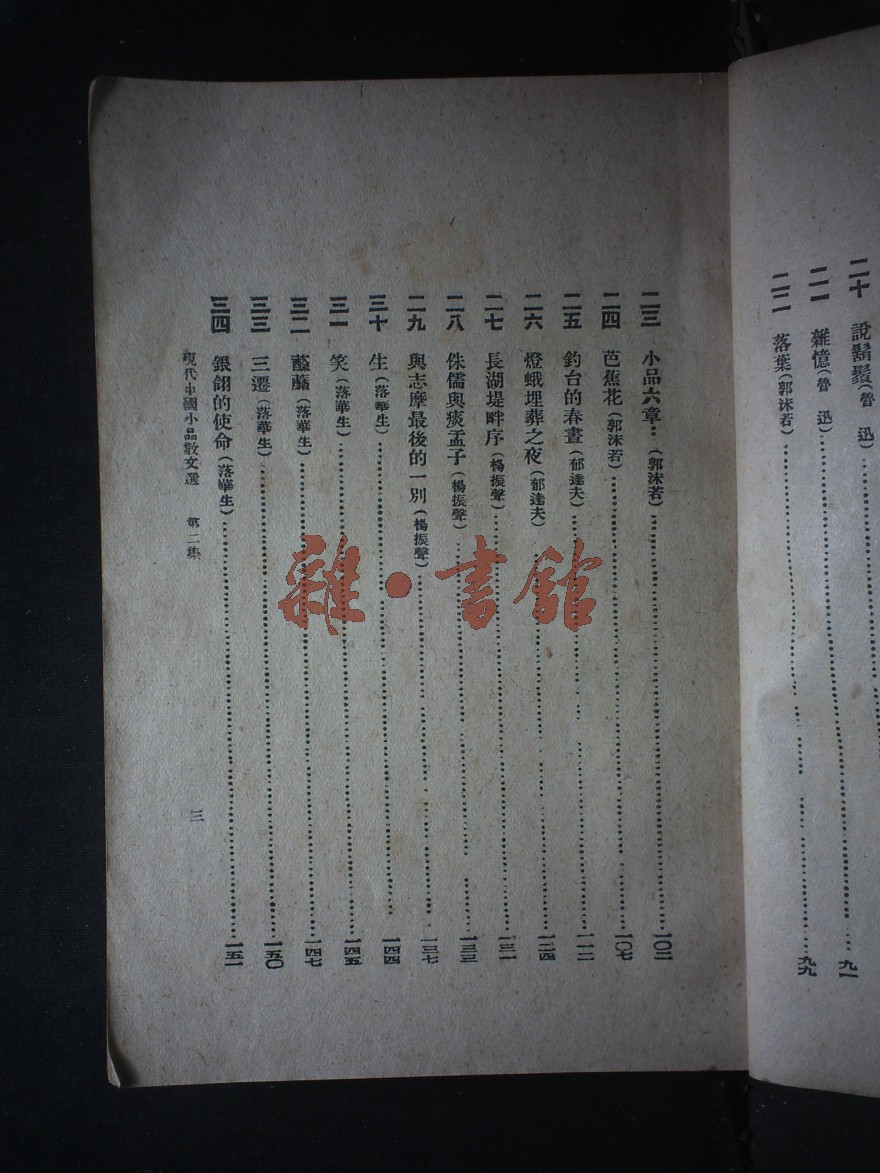 二十 說鬍鬚(魯 迅)
二一 雜憶(魯 迅)……九一
二二 落葉(郭沫若)……九九
二三 小品六章…(郭沫若)……一〇二
二四 芭蕉花(郭沫若)……一〇七
二五 釣台的春晝(郁達夫)……一一二
二六 燈蛾埋葬之夜(郁達夫)……一二四
二七 長湖堤畔序(楊振聲)……一三一
二八 侏儒與痰盂子(楊振聲)……一三三
二九 與志摩最後的一別(楊振聲)……一三七
三十 生(落華生)……一四四
三一 笑(落華生)……一四五
三二 (落華生)……一四七
三三 三遷(落華生)……一五〇
三四 銀翎的使命(落華生)……一五一
現代中國小品散文選 第二集
三
雜·書館